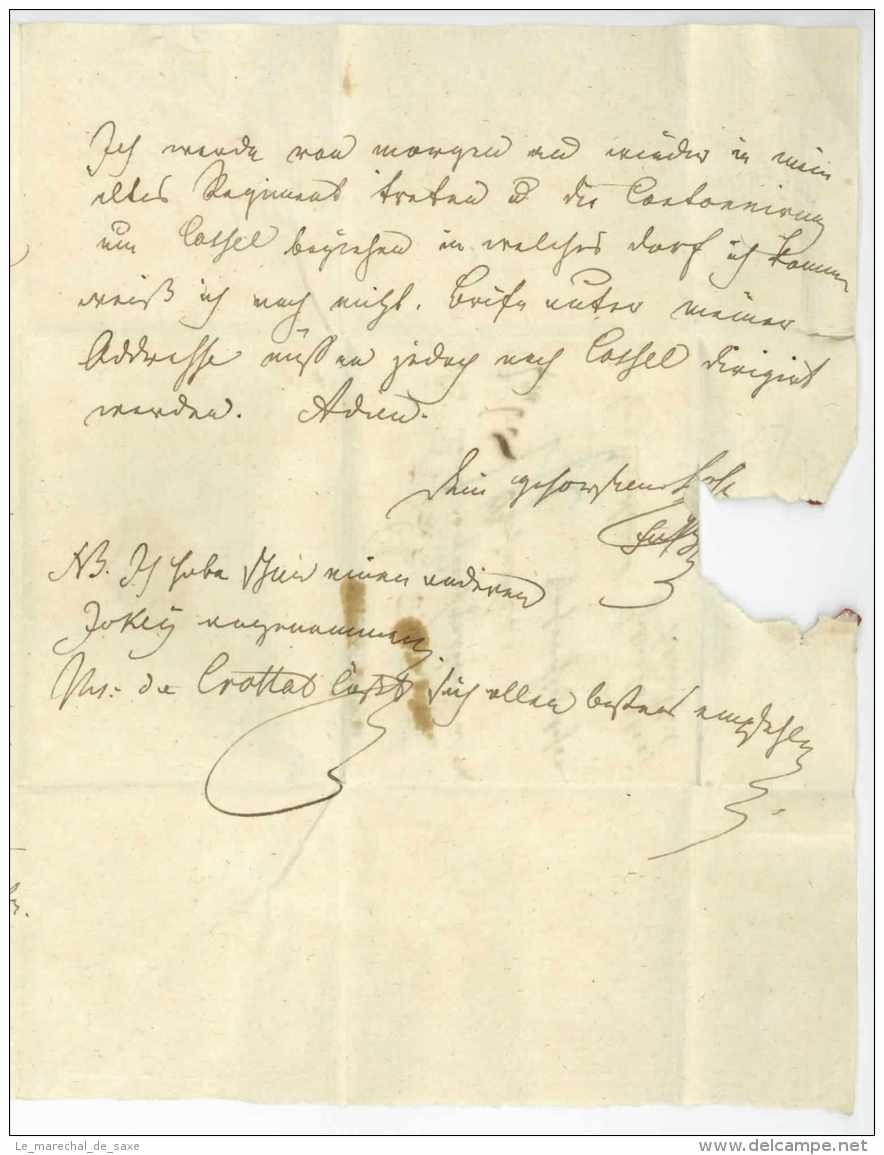 Ich werde von morgen an wieder in mein
altes Regiment treten u die Cantonnirung
um Cassel beziehen in welches Dorf ich komme
weiß ich noch nicht. Briefe unter meiner
Addresse müssen jedoch nach Cassel dirigirt
werden. Adieu.
Dein gehorsamer
NB. Ich habe einen anderen
Jokey angenommen.
Mr. de Crottat läßt sich allen bestens empfehlen
Le_marechal_de_saxe
www.delcampe.net